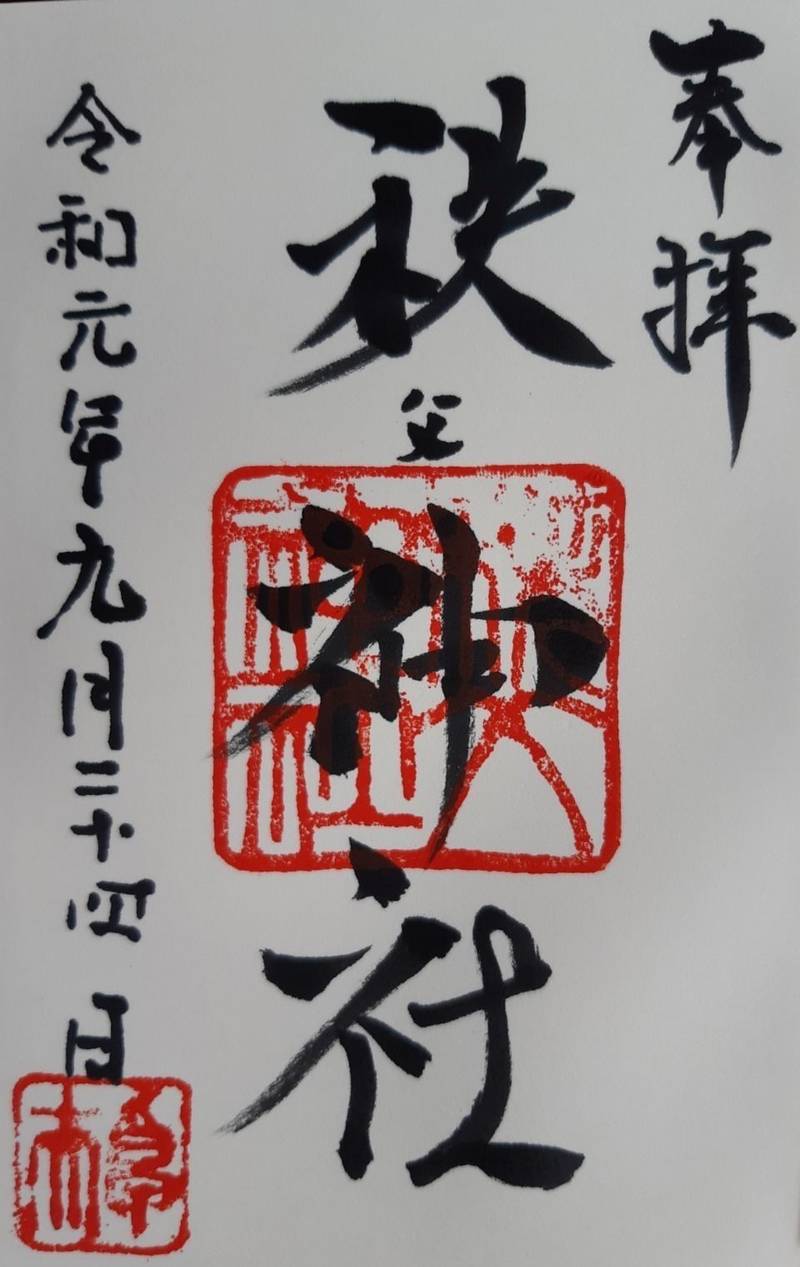 奉拝
秩父神社
令和元年九月二十四日